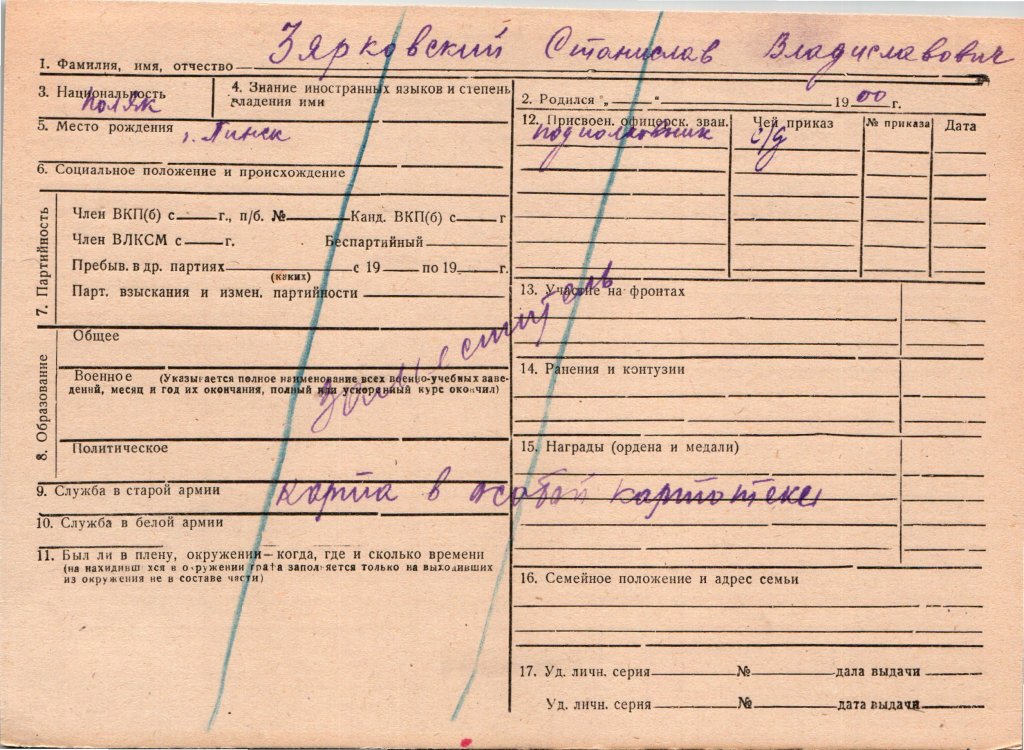 1. Фамилия, имя, отчество Зярковский Станислав Владиславович
3. Национальность поляк
4. Знание иностранных языков и степень владения ими
5. Место рождения г. Пинск
6. Социальное положение и происхождение
7. Партийность
Член ВКП(б) с г., п/б. № Канд. ВКП(б) с г
Член ВЛКСМ с г. Беспартийный
Пребыв. в др. партиях с 19 по 19 г.
(каких)
Парт. взыскания и измен. партийности
8. Образование
Общее
Военное (Указывается полное наименование всех военно-учебных заве-
дений, месяц и год их окончания, полный или ускоренный курс окончил)
Политическое
заместитель
9. Служба в старой армии
карта в особой картотеке
10. Служба в белой армии
11. Был ли в плену, окружении—когда, где и сколько времени
(на находивш хся в окружении графа заполняется только на выходивших
из окружения не в составе части)
2. Родился „ “ 1900 г.
12. Присвоен. офицерск. зван. Чей приказ № приказа Дата
подполковник с/д
13. Участие на фронтах
14. Ранения и контузии
15. Награды (ордена и медали)
16. Семейное положение и адрес семьи
17. Уд. личн. серия № дала выдачи
Уд. личн. серия № дата выдачи